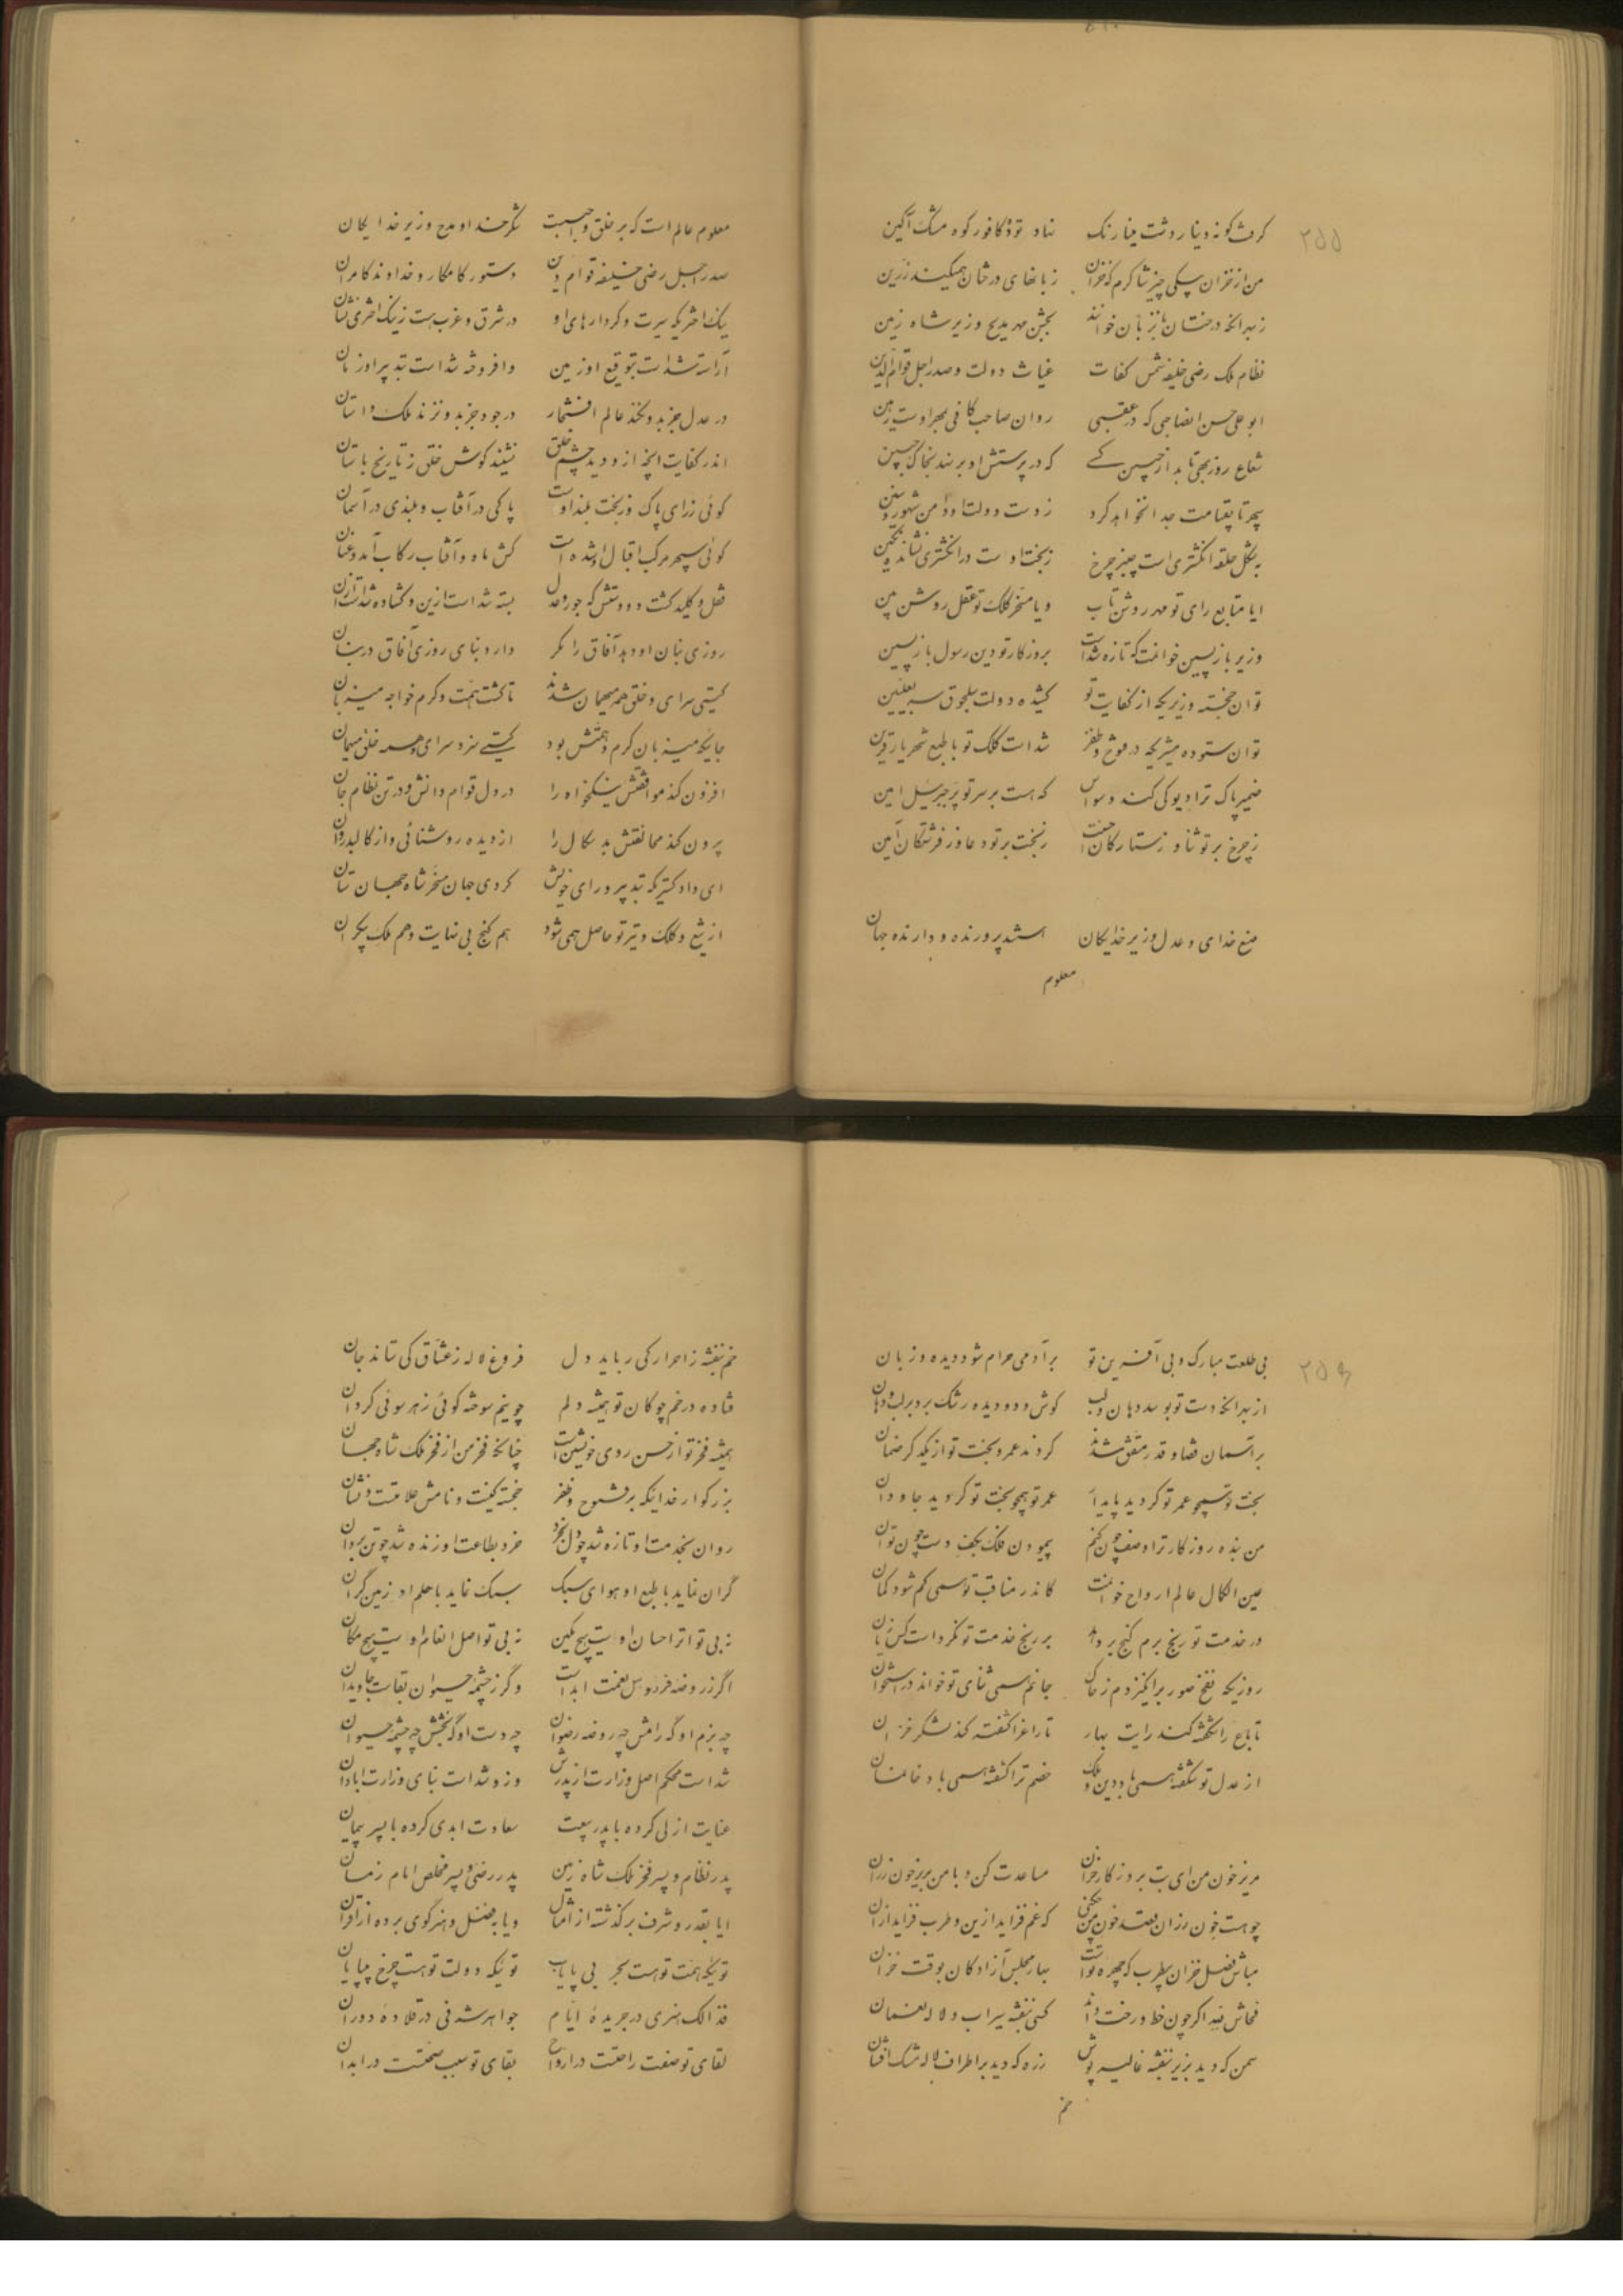 ۲۵۵
گرفت گونه دینار و شت مینا رنگ نهاد توده کافور کوه مشک آگین
من از خزان بیکی چیز شاکرم که خزان زبانهای درختان همیکند زرین
زبهر آنکه درختان بزبان خوانند بجشن مهر مدیح وزیر شاه زمین
نظام ملک رضی خلیفه شمس کفات غیاث دولت و صدر اجل قوام الدین
ابو علی حسن اضاحبی که در عقبی روان صاحب کافی بمهر اوست رهین
شعاع روز بهی تابد از جبین کسی که در پرستش او بر نهد بخاک جبین
سپهر تا بقیامت جدا نخواهد کرد ز دست دولت او دامن شهور و سنین
بشکل حلقه انگشتری است چنبر چرخ ز بخت اوست در انگشتری نشانده نگین
ایا متابع رای تو مهر روشن تاب و یا مسخر کلک تو عقل روشن بین
وزیر بازپسین خوانمت که تازه شداست بروزگار تو دین رسول بازپسین
تو آن خجسته وزیری که از کفایت تو کشیده دولت سلجوق سر بعلیین
تو آن ستوده مشیری که در فتوح و ظفر شداست کلک تو با طبع شهریار قرین
ضمیر پاک ترا دیو کی کند وسواس که هست بر سر تو پر جبرئیل امین
ز چرخ بر تو ثنا و ز ستارگان احسنت ز بخت بر تو دعا و ز فرشتگان آمین
صنع خدای و عدل وزیر خدایگان هستند پرورنده و دارنده جهان
معلوم
معلوم عالم است که بر خلق واجبست شکر خداوند و مدح وزیر خدایگان
صدر اجل رضی خلیفه قوام دین دستور کامکار و خداوند کامران
نیک اختریکه سیرت و کردارهای او در شرق و غرب هست ز نیک اختری نشان
آراسته شداست بتوقیع او زمین وافروخته شداست بتدبیر او زمان
در عدل جز بدو نکند عالم افتخار در جود جز بدو نزند ملک داستان
اندر کفایت آنچه ازو دید چشم خلق نشنید گوش خلق ز تاریخ باستان
گوئی ز رای پاک و ز بخت بلند اوست پاکی در آفتاب و بلندی در آسمان
گوئی سپهر مرکب اقبال او شده است کش ماه و آفتاب رکاب آمد و عنان
قفل و کلید گشت دو دستش که جور و عدل بسته شداست ازین و گشاده شداست ازان
روزی بنان او دهد آفاق را مگر دارد بنای روزی آفاق در بنان
گیتی سرای و خلق همه میهمان شدند تا گشت همت و کرم خواجه میزبان
جائیکه میزبان کرم و همتش بود گیتی سزد سرای و همه خلق میهمان
افزون کند موافقتش نیکخواه را در دل قوام دانش و در تن نظام جان
بیرون کند مخالفتش بدسگال را از دیده روشنائی و از کالبد روان
ای دادگستریکه بتدبیر و رای خویش کردی جهان مسخر شاه جهان ستان
از تیغ و کلک و تیر تو حاصل همی شود هم گنج بی نهایت و هم ملک بیکران
۲۵۶
بی طلعت مبارک و بی آفرین تو بر آدمی حرام شود دیده و زبان
از بهر آنکه دست تو بوسد دهان و لب گوش و دو دیده رشک برد بر لب و دهان
بر آسمان قضا و قدر متفق شدند کردند عمر و بخت تو از یکدگر ضمان
بخت تو همچو عمر تو گردید پایدار عمر تو همچو بخت تو گردید جاودان
من بنده روزگار ترا وصف چون کنم پیمودن فلک بکف دست چون توان
عین الکمال عالم ارواح خوانمت کاندر مناقب تو همی گم شود گمان
در خدمت تو رنج برم گنج بر دهد بر رنج خدمت تو نکرداست کس زیان
روزیکه نفخ صور برانگیزدم ز خاک جانم همی ثنای تو خواند در استخوان
تا باغ را شکفته کند رایت بهار تا راغ را کفته کند لشکر خزان
از عدل تو شکفته همی باد دین و ملک خصم ترا کفته همی باد خانمان
مریز خون من ای بت بروزگار خزان مساعدت کن و با من بریز خون رزان
چو هست خون رزان قصد خون من چکنی که غم فزاید ازین و طرب فزاید ازان
مباش فصل خزان بیطرب که چهره تست بهار مجلس آزادگان بوقت خزان
فحاش لله اگر چون خط و رخت دانند کسی بنفشه سیراب و لاله نعمان
سمن که دید بزیر بنفشه غالیه پوش زره که دید بر اطراف لاله مشک افشان
خم
خم بنفشه ز احرار کی رباید دل فروغ لاله ز عشاق کی ستاند جان
فتاده در خم چوگان تو همیشه دلم چو نیم سوخته گوئی ز هر سوئی گردان
همیشه فخر تو از حسن روی خویشتن است چنانکه فخر من از فخر ملک شاه جهان
بزرگوار خدائیکه بر فتوح و ظفر خجسته کنیت و نامش علامتست و نشان
روان بخدمت او تازه شد چو دل بخرد خرد بطاعت او زنده شد چو تن بروان
گران نماید با طبع او هوای سبک سبک نماید با حلم او زمین گران
نه بی تواتر احسان اوست هیچ مکین نه بی تواصل انعام اوست هیچ مکان
اگر ز روضه فردوس نعمت ابدست و گر ز چشمه حیوان بقاست جاویدان
چه بزم او گه رامش چه روضه رضوان چه دست او گه بخشش چه چشمه حیوان
شداست محکم اصل وزارت از پدرش وزو شداست بنای وزارت ابادان
عنایت ازلی کرده با پدر بیعت سعادت ابدی کرده با پسر پیمان
پدر نظام و پسر فخر ملک شاه زمین پدر رضی و پسر مخلص امام زمان
ایا بقدر و شرف برگذشته از امثال و یا بفضل و هنر گوی برده از اقران
توئیکه همت تو هست بحر بی پایاب توئیکه دولت تو هست چرخ بی پایان
فذالک هنری در جریده ایام جواهر شرفی در قلاده دوران
لقای تو صفت راحتست در ارواح بقای تو سبب صحتست در ابدان